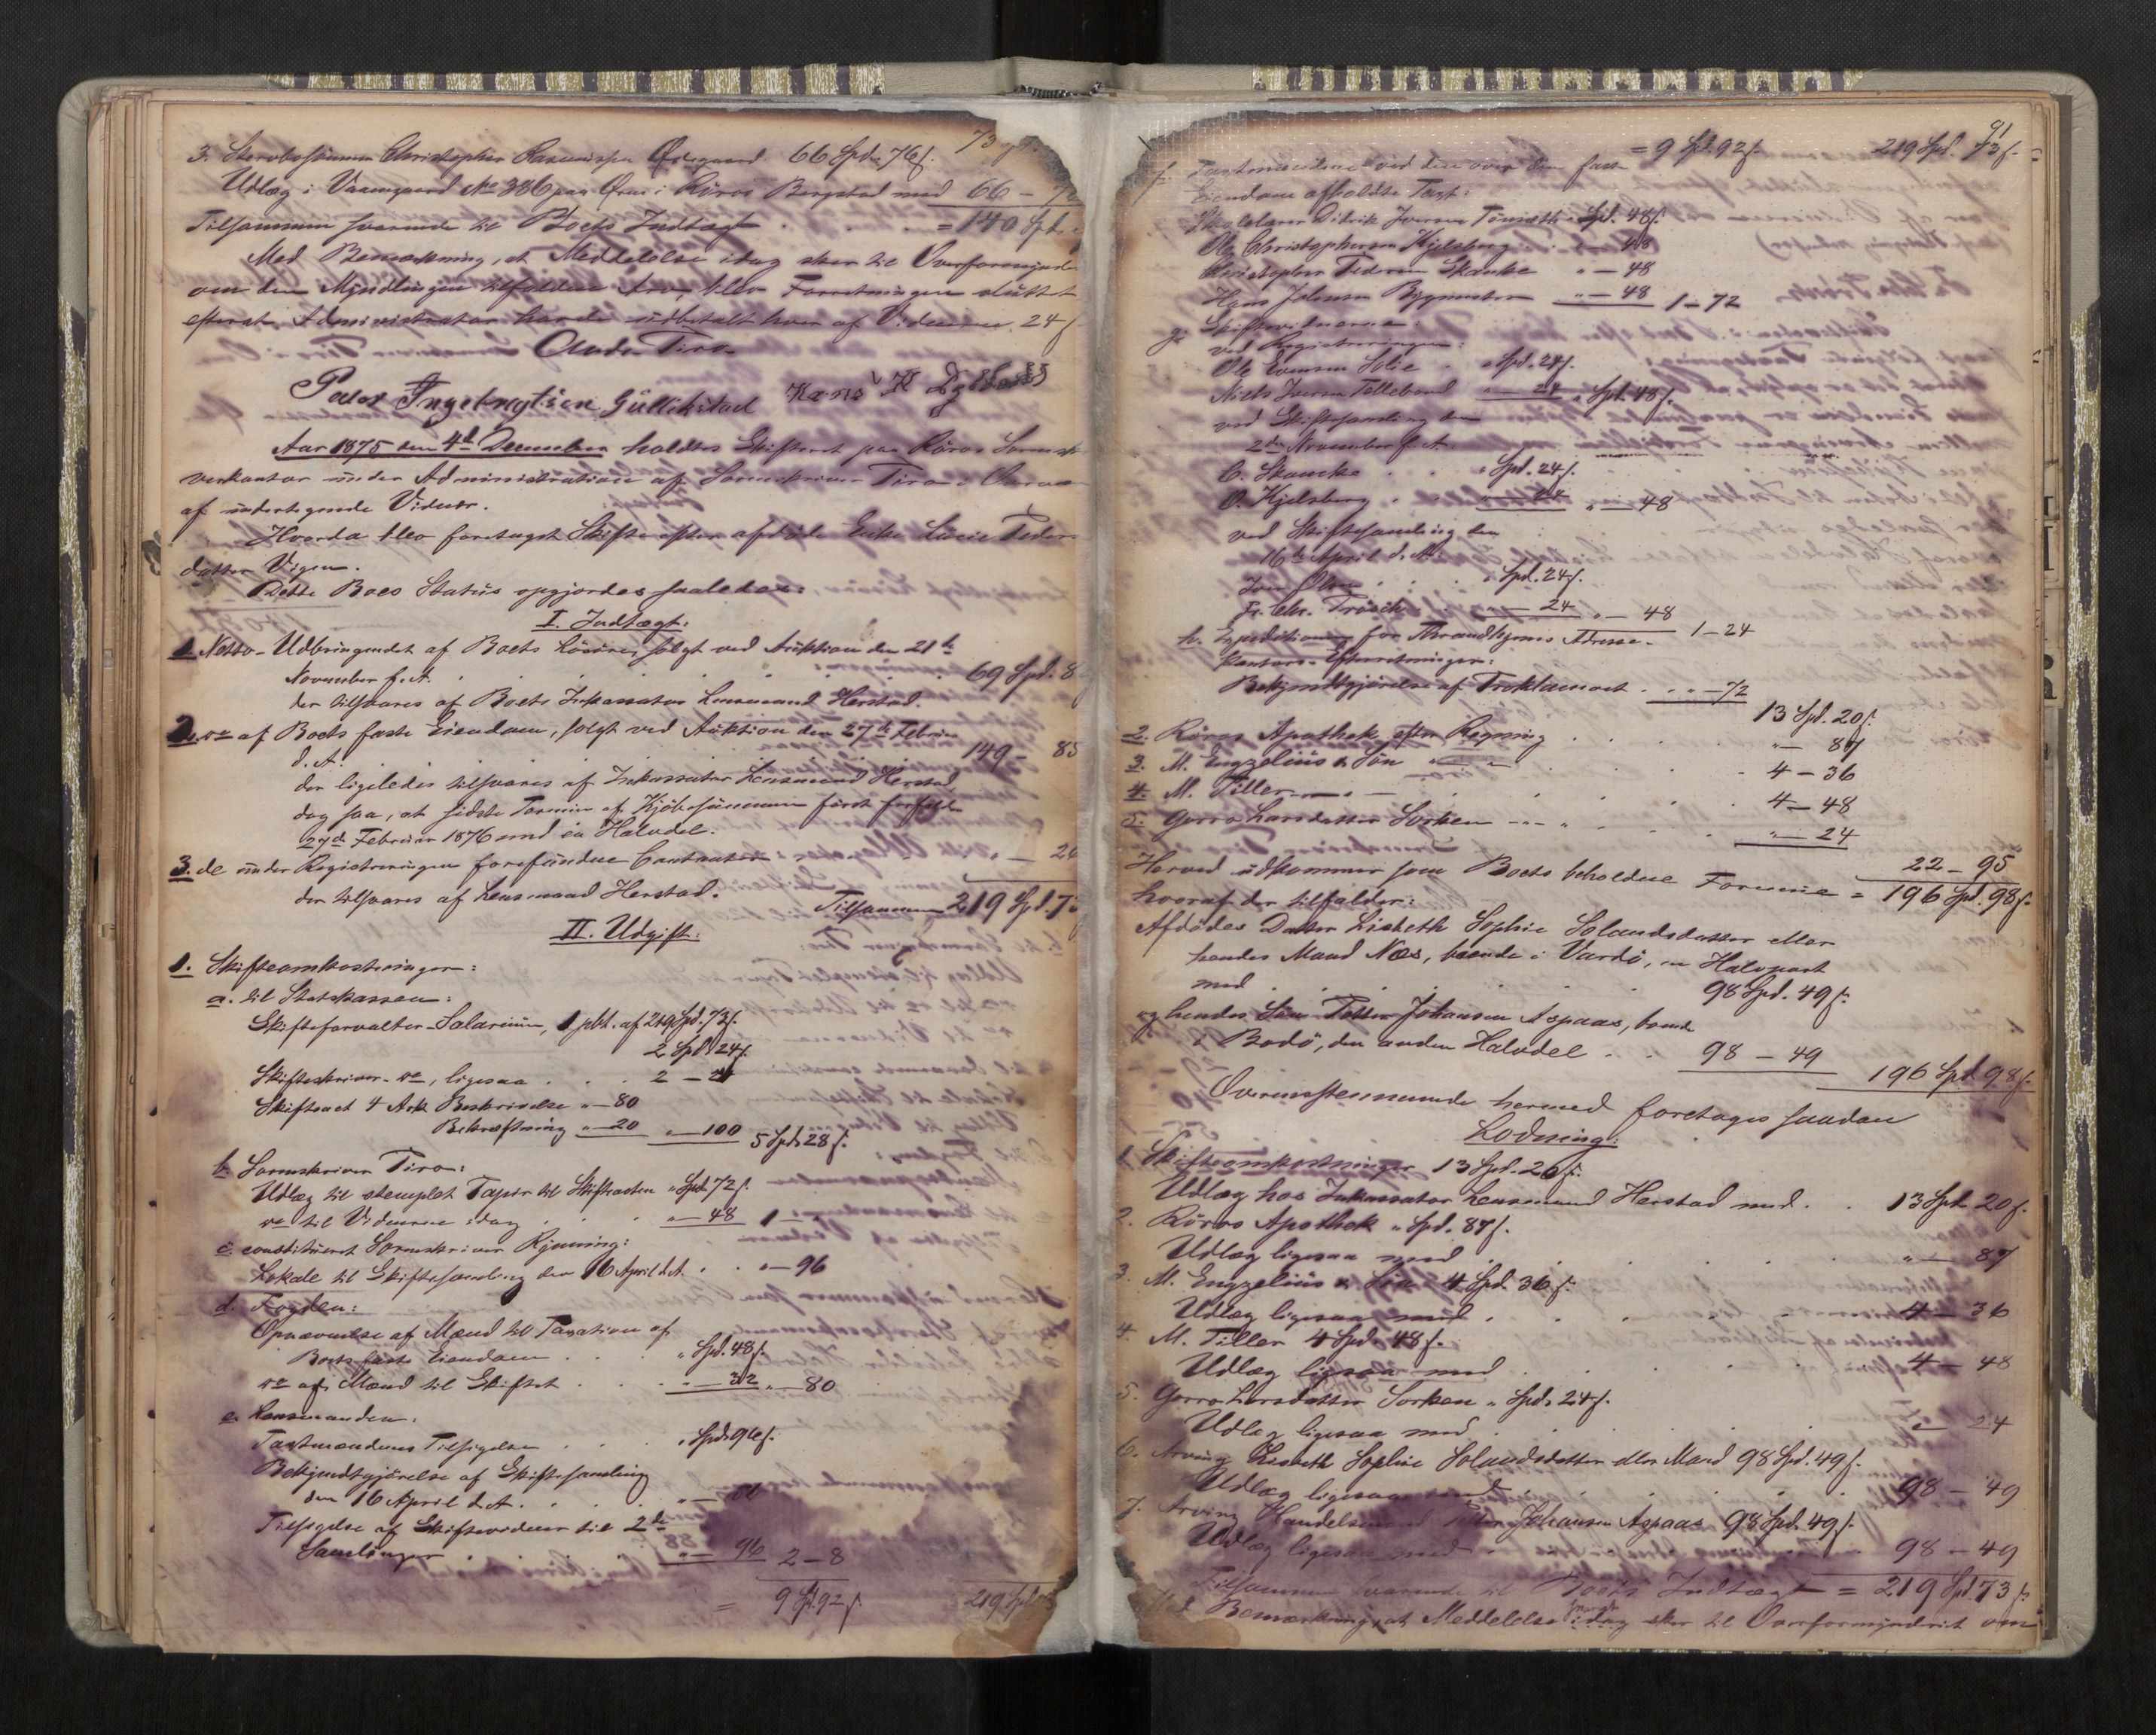 3. Stervbosummen Christopher Rasmussen Ødegaard 66 Spd. 76 f. 73
Udlæg i Vaaningaard No 386 paa Øren i Röros Bergstad med 66 –
Tilsammen svarende til Boets Indtægt = 140 Spd.
Med Bemærkning, at Meddelelse idag sker til Overformynde
om den Myndlingen tilfaldne Arv, blev Forretningen sluttet
efterat Administrator havde udbetalt hver af Vidnerne 24 f
Peder Ingebrigtsen Gullikstad Hans H
Aar 1875 den 4de December holdtes Skifteret paa Röros Sorensk
verkontor under Administration af Sorenskriver i Overvær
af undertegnede Vidner.
Hvorda blev foretaget Skifte efter afdöde Enke Lucie Peders
datter Vigen.
Dette Boes Status opgjordes saaledes:
I. Indtægt:
1. Netto-Udbringendet af Boets Lösöre, solgt ved Auktion den 21de
November f. A. 69 Spd. 8
der tilsvares af Boets Inkassator Lensmand Herstad.
2. do af Boets faste Eiendom, solgt ved Auktion den 27de Februar
d. A. 149 – 85
der ligeledes tilsvares af Inkassator Lensmand Herstad,
dog saa, at sidste Termin af Kjöbesummen först forfalder
27de Februar 1876 med en Halvdel.
3. de under Registreringen forefundne Contanter " – 2
der tilsvares af Lensmand Herstad.
Tilsammen 219 Spd. 73
II. Udgift:
1. Skifteomkostninger:
a. til Statskassen:
Skifteforvalter-Salarium, 1 pCt. af 219 Spd. 73 f.
2 Spd. 24 f.
Skifteskriver-do, ligesaa . . . 2 – 24
Skifteact 4 Ark Beskrivelse " – 80
Bekræftning " – 20 " – 100 5 Spd. 28 f.
b. Sorenskriver
Udlæg til stemplet Papir til Skifteacten " Spd. 72 f.
do til Vidnerne idag " – 48 1 –
c. constitueret Sorenskriver Rjenning:
Lokale til Skiftesamling den 16 April d. A. . . " – 96
d. Fogden:
Opnævnelse af Mænd til Taxation af
Boets faste Eiendom . . . " Spd. 48 f.
do af Mænd til Skiftet . . . " – 32 " – 80
e. Lensmanden:
Taxtmændenes Tilsigelse . . . " Spd. 96 f.
Bekjendtgjörelse af Skiftesamling
den 16 April d. A. . . . .
Tilsigelse af Skiftevidner til 2de
Samlinger . . . " – 96 2 – 8
= 9 Spd. 92 f. 219 Spd.
91
= 9 Spd. 92 f. 219 Spd. 73 f.
f. Taxtmændene ved den over den faste
Eiendom afholdte Taxt:
Skolelærer Didrik Iversen " Spd. 48 f.
Ole Christophersen Kjelsberg . . " – 48
Christopher Pedersen Skanke " – 48
Hans Johnsen Bygmester " – 48 1 – 72
g. Skiftevidnerne:
ved Registreringen:
Ole Evensen Holie . " Spd. 24 f.
Niels Iversen Tollebod " – 24 " Spd. 48 f.
ved Skiftesamling den
2den November f. A.
C. Skancke . . " Spd. 24 f.
O. Kjelsberg . . " – 24 " – 48
ved Skiftesamling den
16de April d. A.
Iver Olsen . . " Spd. 24 f.
Fr. Chr. Prösch . . " – 24 " – 48 1 – 24
h. Expeditionen for Throndhjems Adresse-
kontors-Efterretninger:
Bekjendtgjörelse af Proklamaet . . " – 72
13 Spd. 20 f.
2. Röros Apothek efter Regning . . . " – 87
3. M. Engzelius & Sön " – " . . . 4 – 36
4. M. Tiller " – . . . 4 – 48
5. Gorro Larsdatter Sorken – " – " . . . " – 24
22 – 95
Herved udkommer som Boets beholdne Formue = 196 Spd. 98 f.
hvoraf der tilfalder:
Afdödes Datter Lisbeth Sophie Solundsdatter eller
hendes Mand Næs, boende i Vardö, en Halvpart
med . . . . 98 Spd. 49 f.
og hendes Sön Peder Johansen Aspaas, boende
i Bodö, den anden Halvdel . . 98 – 49
196 Spd. 98 f.
Overensstemmende hermed foretages saadan
Lodning:
1. Skifteomkostninger 13 Spd. 20 f.
Udlæg hos Inkassator Lensmand Herstad med . . 13 Spd. 20 f.
2. Röros Apothek " Spd. 87 f.
Udlæg ligesaa med . . . . " – 87
3. M. Engzelius & Sön 4 Spd. 36 f.
Udlæg ligesaa med . . . . 4 – 36
4. M. Tiller 4 Spd. 48 f.
Udlæg ligesaa med . . . . 4 – 48
5. Gorro Larsdatter Sorken " Spd. 24 f.
Udlæg ligesaa med . . . . " – 24
6. Arving Lisbeth Sophie Solundsdatter eller Mand 98 Spd. 49 f.
Udlæg ligesaa med . . . . 98 – 49
7. Arving Handelsmand Peder Johansen Aspaas 98 Spd. 49 f.
Udlæg ligesaa med . . . . 98 – 49
Tilsammen svarende til Boets Indtægt = 219 Spd. 73 f.
Med Bemærkning, at Meddelelse idag sker til Overformynderiet om